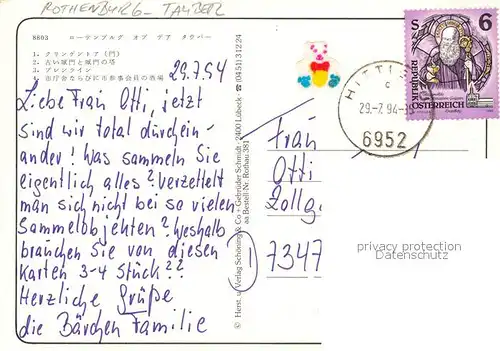 ROTHENBURG - TAUBER
8803 ローテンブルグ オブ デア タウバー
1. クリンゲントア(門)
2. 古い城門と城門の塔
3. プレンライン
4. 市庁舎ならびに市参事会員の酒場
29.7.94
Liebe Frau Otti, jetzt
sind wir total durchein-
ander! Was sammeln Sie
eigentlich alles? Verzettelt
man sich nicht bei so vielen
Sammelobjekten? Weshalb
brauchen Sie von diesen
Karten 3-4 Stück??
Herzliche Grüße
die Bärchen Familie
© Herst. u. Verlag Schöning & Co + Gebrüder Schmidt · 2400 Lübeck · ☎ (0451) 31224
aa Bestell Nr. Rothau 381
S 6
REPUBLIK
ÖSTERREICH
HITTIS
c
29.-7.94-
6952
Frau
Otti
Zollg.
D 7347
privacy protection
Datenschutz